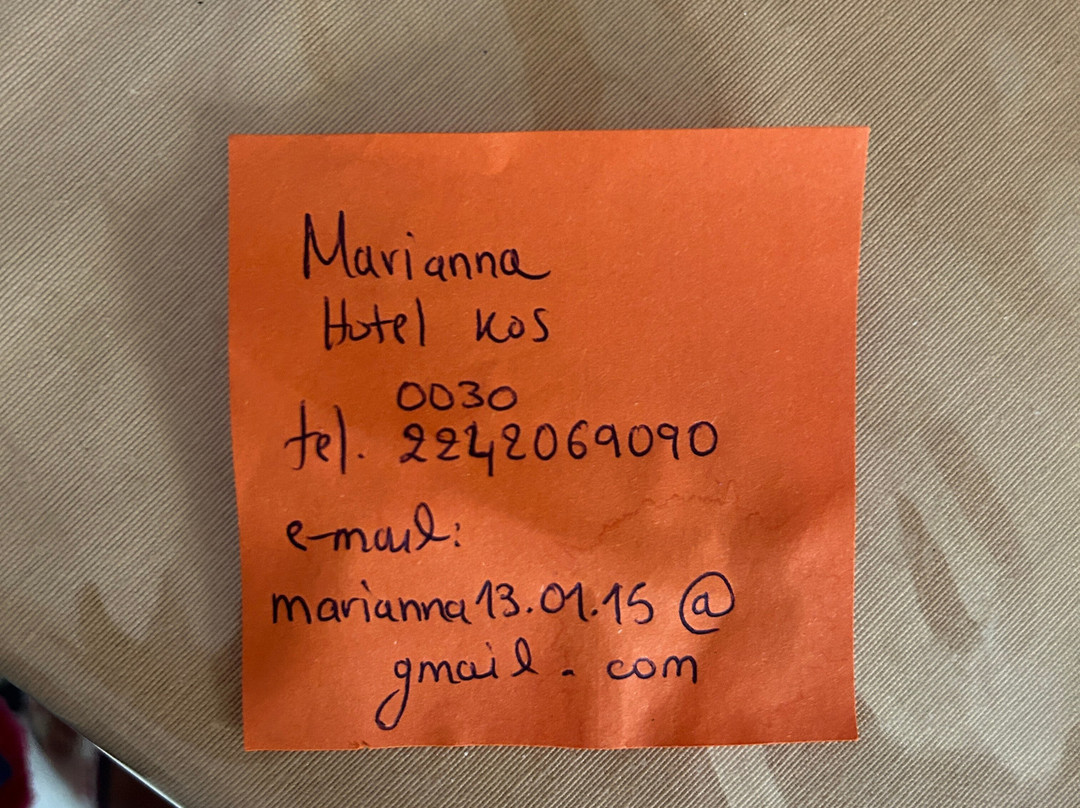 Marianna
Hotel Kos
0030
tel. 2242069090
e-mail:
marianna13.01.15@
gmail.com